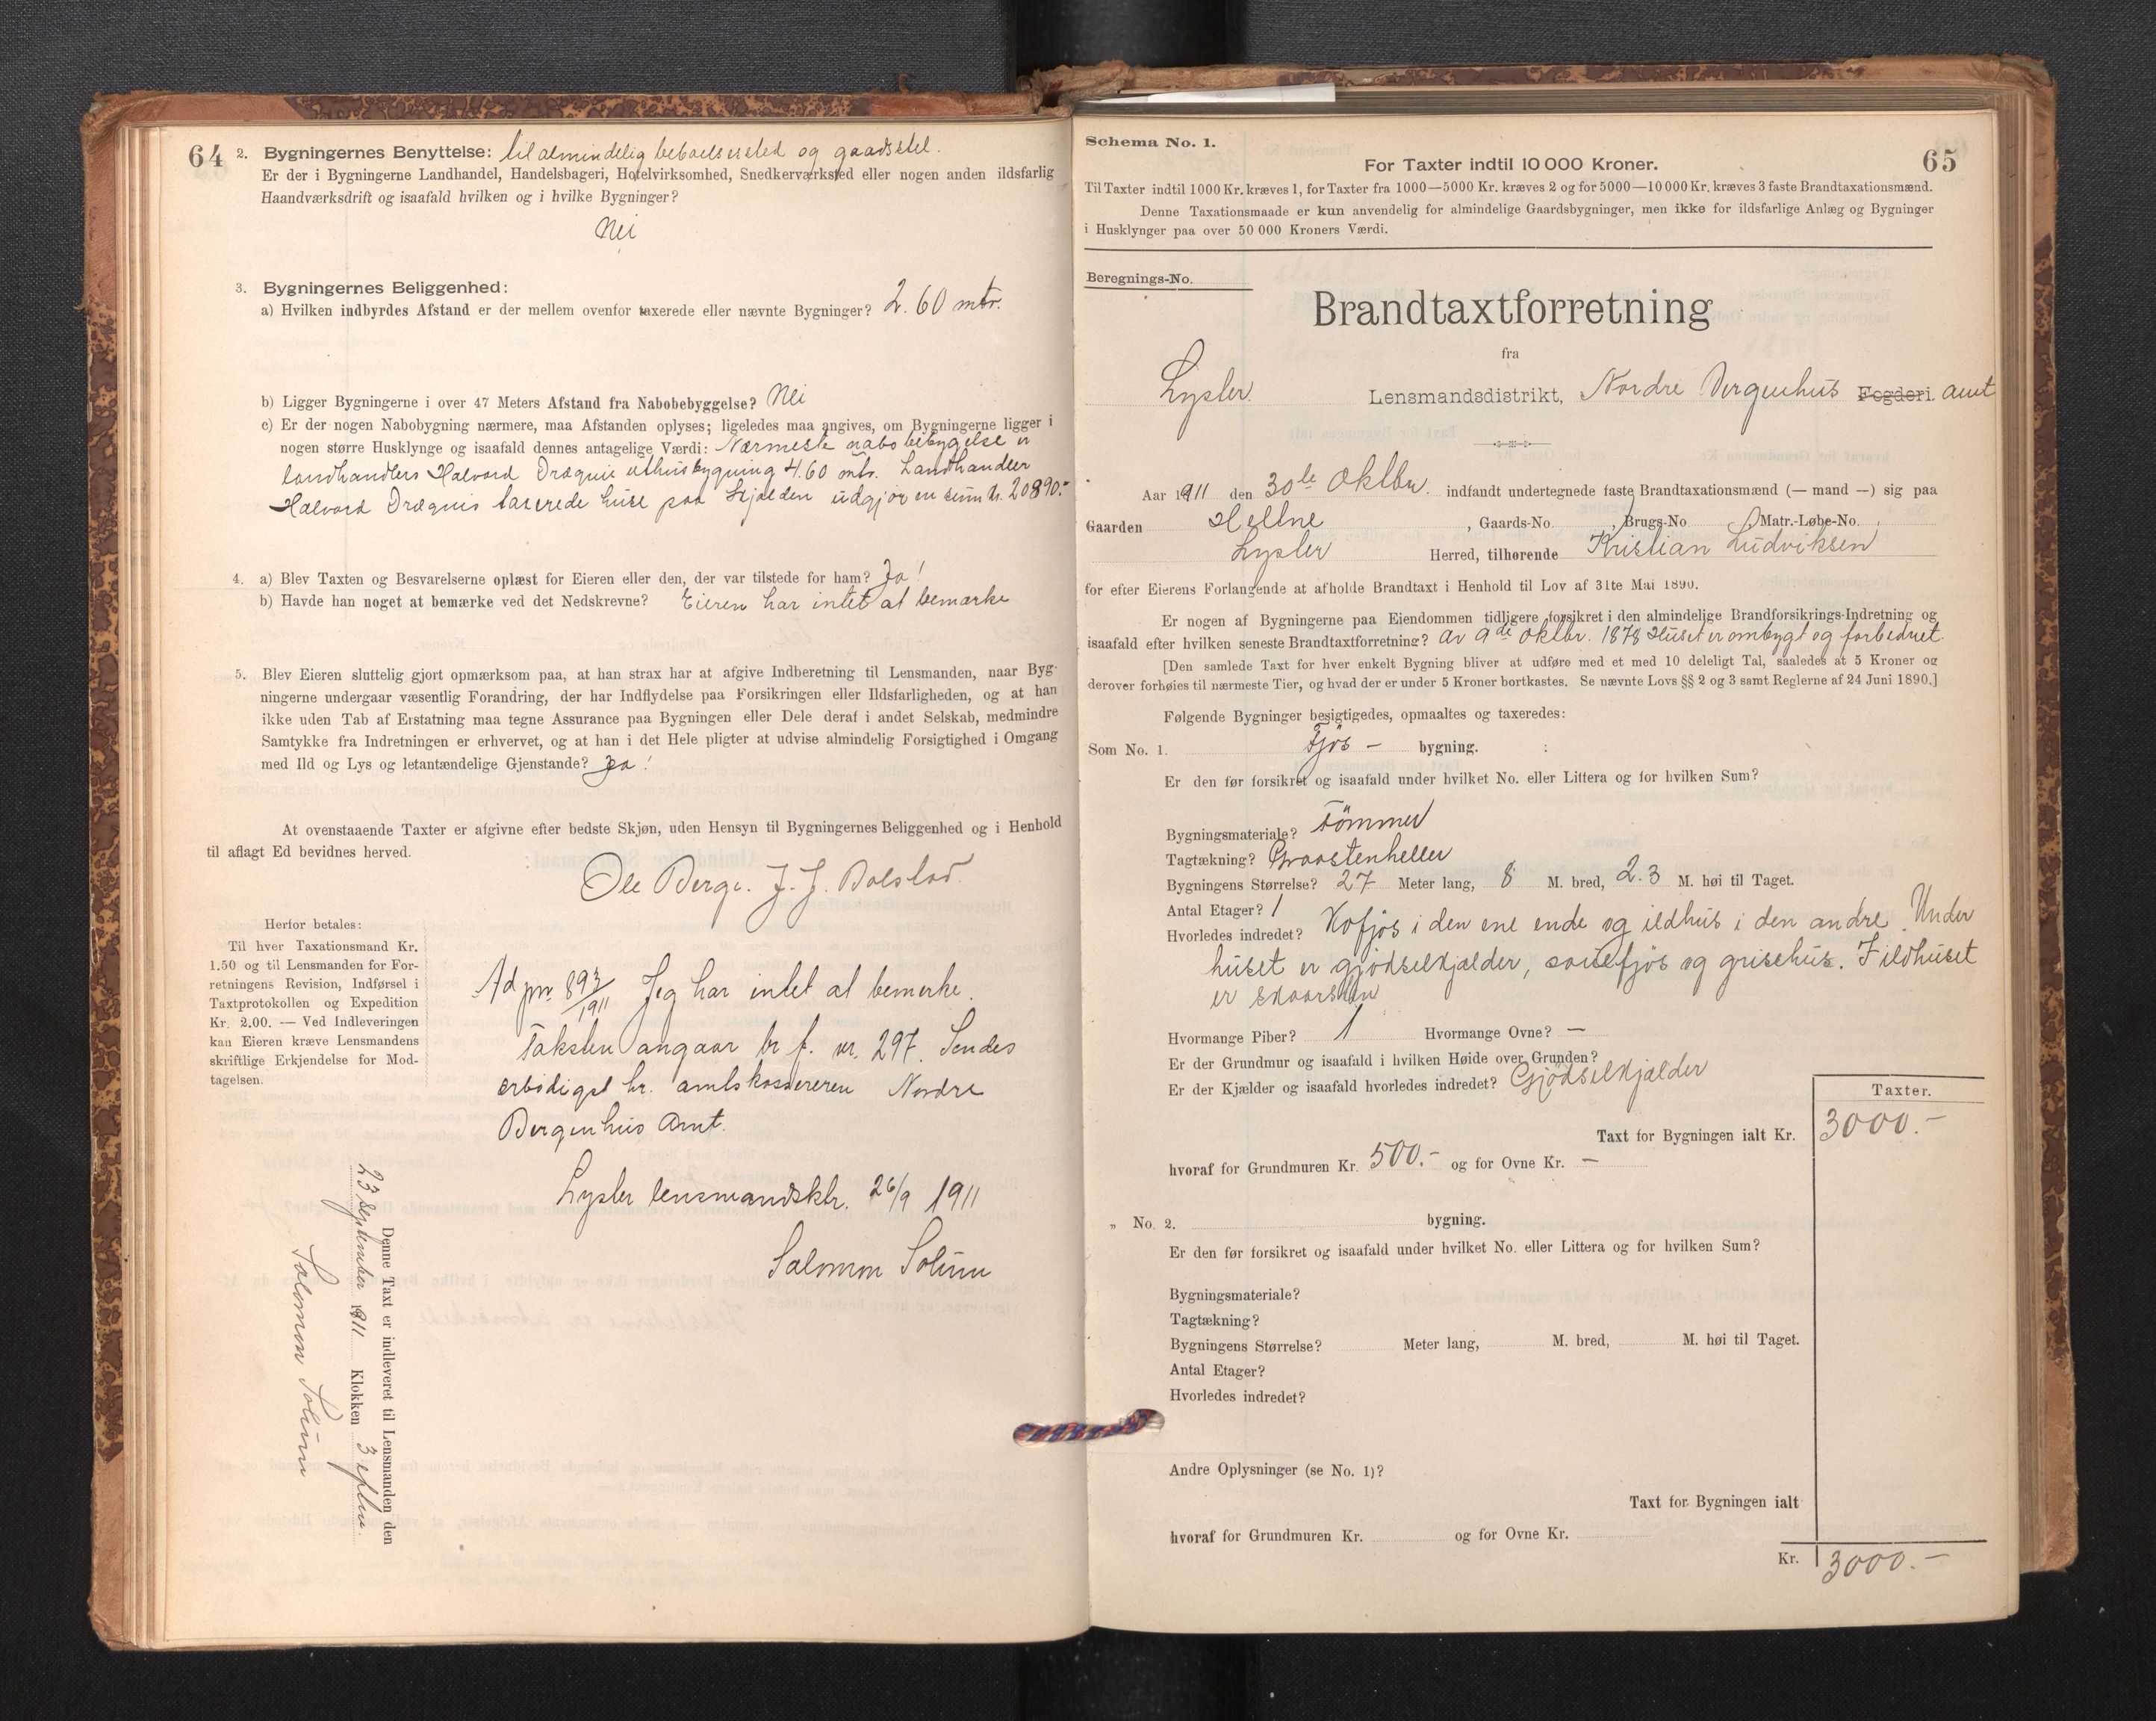 64
2. Bygningernes Benyttelse: til almindelig beboelsessted og gaadsstel.
Er der i Bygningerne Landhandel, Handelsbageri, Hotelvirksomhed, Snedkerværksted eller nogen anden ildsfarlig
Haandværksdrift og isaafald hvilken og i hvilke Bygninger?
Nei
3. Bygningernes Beliggenhed:
a) Hvilken indbyrdes Afstand er der mellem ovenfor taxerede eller nævnte Bygninger? 2.60 mtr.
b) Ligger Bygningerne i over 47 Meters Afstand fra Nabobebyggelse? Nei
c) Er der nogen Nabobygning nærmere, maa Afstanden oplyses; ligeledes maa angives, om Bygningerne ligger i
nogen større Husklynge og isaafald dennes antagelige Værdi: Nærmeste nabobebygelse er
landhandlers Halvord Drægnis uthusbygning 4.60 mtr. Landhandler
Halvord Drægnis taxerede huse paa Skjolden udgjør en sum kr. 20890.-
4. a) Blev Taxten og Besvarelserne oplæst for Eieren eller den, der var tilstede for ham? Ja!
b) Havde han noget at bemærke ved det Nedskrevne? Eieren har intet at bemærke
5. Blev Eieren sluttelig gjort opmærksom paa, at han strax har at afgive Indberetning til Lensmanden, naar Byg-
ningerne undergaar væsentlig Forandring, der har Indflydelse paa Forsikringen eller Ildsfarligheden, og at han
ikke uden Tab af Erstatning maa tegne Assurance paa Bygningen eller Dele deraf i andet Selskab, medmindre
Samtykke fra Indretningen er erhvervet, og at han i det Hele pligter at udvise almindelig Forsigtighed i Omgang
med Ild og Lys og letantændelige Gjenstande? Ja!
At ovenstaaende Taxter er afgivne efter bedste Skjøn, uden Hensyn til Bygningernes Beliggenhed og i Henhold
til aflagt Ed bevidnes herved.
Ole Berge. J. J. Bolstad
Herfor betales:
Til hver Taxationsmand Kr.
1.50 og til Lensmanden for For-
retningens Revision, Indførsel i
Taxtprotokollen og Expedition
Kr. 2.00. — Ved Indleveringen
kan Eieren kræve Lensmandens
skriftlige Erkjendelse for Mod-
tagelsen.
Ad pnr 893/1911 Jeg har intet at bemerke.
Taksten angaar br. f. nr. 297. Sendes
ærbødigst hr. amtskassereren Nordre
Bergenhus Amt.
Lyster lensmandsktr. 26/9 1911
Salomon Solum
Denne Taxt er indleveret til Lensmanden den
23 September 1911 Klokken 3 eftm.
Salomon Solum
Schema No. 1.
65
For Taxter indtil 10 000 Kroner.
Til Taxter indtil 1000 Kr. kræves 1, for Taxter fra 1000—5000 Kr. kræves 2 og for 5000—10 000 Kr. kræves 3 faste Brandtaxationsmænd.
Denne Taxationsmaade er kun anvendelig for almindelige Gaardsbygninger, men ikke for ildsfarlige Anlæg og Bygninger
i Husklynger paa over 50 000 Kroners Værdi.
Beregnings-No.
Brandtaxtforretning
fra
Lyster Lensmandsdistrikt, Nordre Bergenhus Fogderi. amt
Aar 1911 den 30te Oktbr. indfandt undertegnede faste Brandtaxationsmænd (— mand —) sig paa
Gaarden Hellne, Gaards-No. , Brugs-No. , Matr.-Løbe-No. ,
Lyster Herred, tilhørende Kristian Ludviksen
for efter Eierens Forlangende at afholde Brandtaxt i Henhold til Lov af 31te Mai 1890.
Er nogen af Bygningerne paa Eiendommen tidligere forsikret i den almindelige Brandforsikrings-Indretning og
isaafald efter hvilken seneste Brandtaxtforretning? av 9de oktbr. 1878 Huset er ombygt og forbedret.
[Den samlede Taxt for hver enkelt Bygning bliver at udføre med et med 10 deleligt Tal, saaledes at 5 Kroner og
derover forhøies til nærmeste Tier, og hvad der er under 5 Kroner bortkastes. Se nævnte Lovs §§ 2 og 3 samt Reglerne af 24 Juni 1890.]
Følgende Bygninger besigtigedes, opmaaltes og taxeredes:
Som No. 1. Fjøs - bygning. :
Er den før forsikret og isaafald under hvilket No. eller Littera og for hvilken Sum?
Bygningsmateriale? Tømmer
Tagtækning? Graastenheller
Bygningens Størrelse? 27 Meter lang, 8 M. bred, 2.3 M. høi til Taget.
Antal Etager? 1
Hvorledes indredet? Kofjøs i den ene ende og ildhus i den andre. Under
huset er gjødselkjælder, sauefjøs og grisehus. I ildhuset
er skorsten
Hvormange Piber? 1 Hvormange Ovne? —
Er der Grundmur og isaafald i hvilken Høide over Grunden?
Er der Kjælder og isaafald hvorledes indredet? Gjødselkjælder
Taxter.
Taxt for Bygningen ialt Kr. 3000.-
hvoraf for Grundmuren Kr. 500.- og for Ovne Kr. —
„ No. 2. bygning.
Er den før forsikret og isaafald under hvilket No. eller Littera og for hvilken Sum?
Bygningsmateriale?
Tagtækning?
Bygningens Størrelse? Meter lang, M. bred, M. høi til Taget.
Antal Etager?
Hvorledes indredet?
Andre Oplysninger (se No. 1)?
Taxt for Bygningen ialt
hvoraf for Grundmuren Kr. og for Ovne Kr.
Kr. 3000.-